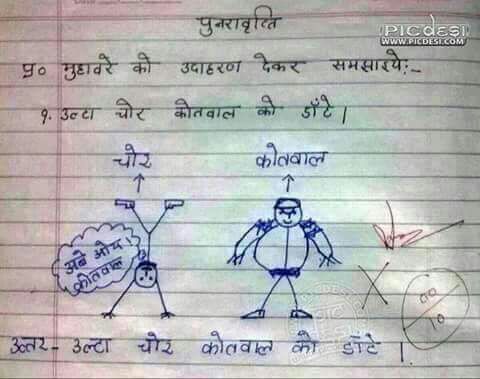 पुनरावृत्ति
PICdESI
WWW.PICDESI.COM
प्र० मुहावरे को उदाहरण देकर समझाइये:-
१. उल्टा चोर कोतवाल को डाँटे ।
चोर कोतवाल
अबे ओय
कोतवाल
00
10
उत्तर - उल्टा चोर कोतवाल को डाँटे ।